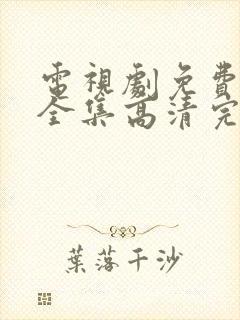 電視劇免費
全集高清完
葉落千沙